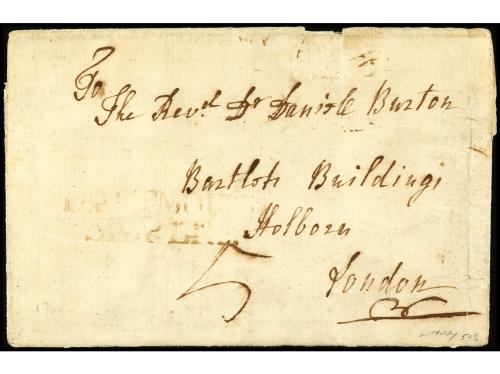 To
The Revd. Dr Daniele Burton
Bartlots Buildings
Holborn
5
London